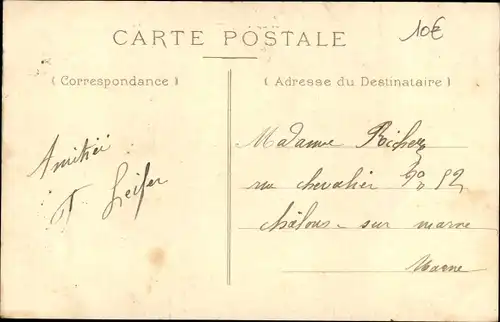 10€
CARTE POSTALE
(Correspondance)
(Adresse du Destinataire)
Amitiés
T Leifer
Madame Richez
rue chevalier No 52
châlons-sur marne
Marne